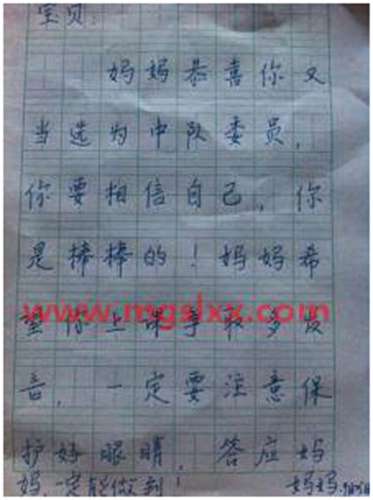 宝贝:
妈妈恭喜你又
当选为中队委员,
你要相信自己,你
是棒棒的!妈妈希
www.mgslxx.com
望你上课争取多发
言,一定要注意保
护好眼睛,答应妈
妈一定能做到!
妈妈.